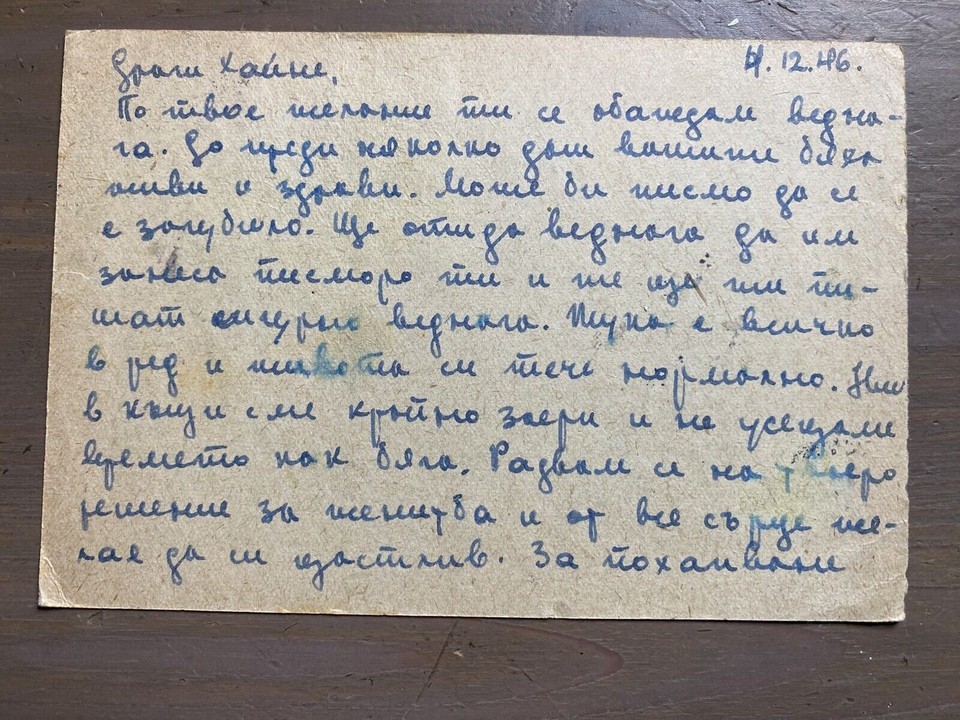 Драги Хайне,
4.12.46.
По твое желание ти се обаждам ведна-
га. До преди няколко дни вашите бяха
живи и здрави. Може би писмо да се
е загубило. Ще отида веднага да им
занеса писмото ти и те ще ти пи-
шат сигурно веднага. Тука е всичко
в ред и живота си тече нормално. Ние
в къщи сме крайно заети и не усещаме
времето как бяга. Радвам се на твоето
решение за женитба и от все сърце же-
лая да си щастлив. За похапване